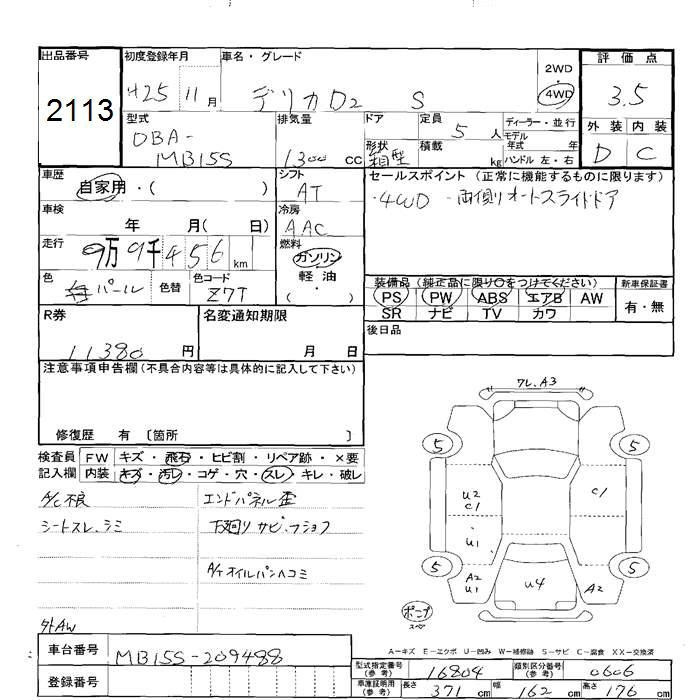 出品番号
2113
初度登録年月
H25 11月
車名・グレード
デリカD2 S
2WD
4WD
評価点
3.5
外装 内装
D C
型式
DBA-
MB15S
排気量
1300 cc
ドア
形状
箱型
定員
5 人
積載
kg
ディーラー・並行
モデル
年式 年
ハンドル 左・右
車歴
自家用・( )
シフト
AT
セールスポイント(正常に機能するものに限ります)
・4WD ・両側オートスライドドア
車検
年 月( 日)
冷房
AAC
走行
9万9千456km
燃料
ガソリン
軽油
( )
色
パール
色替
色コード
Z7T
装備品(純正品に限り○をつけてください)
PS PW ABS エアB AW
SR ナビ TV カワ
新車保証書
有・無
R券
11380 円
名変通知期限
月 日
後日品
注意事項申告欄(不具合内容等は具体的に記入して下さい)
修復歴 有 〔箇所 〕
検査員
記入欄
FW キズ・飛石・ヒビ割・リペア跡・×要
内装 キズ・汚レ・コゲ・穴・スレ・キレ・破レ
A/C不良
エンドパネル歪
シートスレ、シミ
下廻りサビ、フショク
A/Tオイルパンヘコミ
外AW
ワレ、A3
5
5
U2
C1
C1
U1
5
5
A2
U1
U4
A2
スペ
A−キズ E−エクボ U−凹み W−補修跡 S−サビ C−腐食 XX−交換済
車台番号
MB15S-209488
登録番号
型式指定番号
(参考)
16804
類別区分番号
(参考)
0606
車庫証明用
(参考)
長さ 371 cm
幅 162 cm
高さ 176 cm